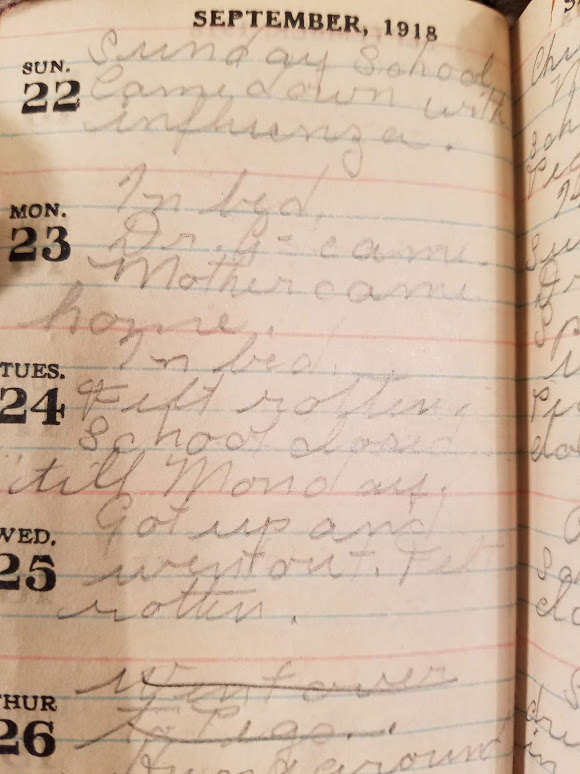 SEPTEMBER, 1918
SUN.
22
Sunday School
Came down with
influenza.
MON.
23
In bed.
Dr. G- came.
Mother came
home.
TUES.
24
In bed.
Felt rotten.
School closed
'till Monday.
WED.
25
Got up and
went out. Felt
rotten.
THUR
26
Went over
to
around